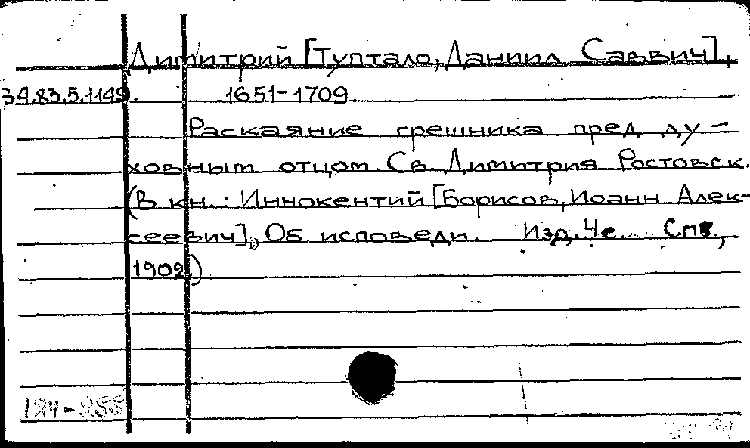 Димитрий [Туптало, Даниил Саввич],
34.83.5.1149. 1651-1709
Раскаяние грешника пред ду-
ховным отцом Св. Димитрия Ростовск.
(В кн.: Иннокентий [Борисов, Иоанн Алек-
сеевич], Об исповеди. Изд. 4е. Спб.,
1902)